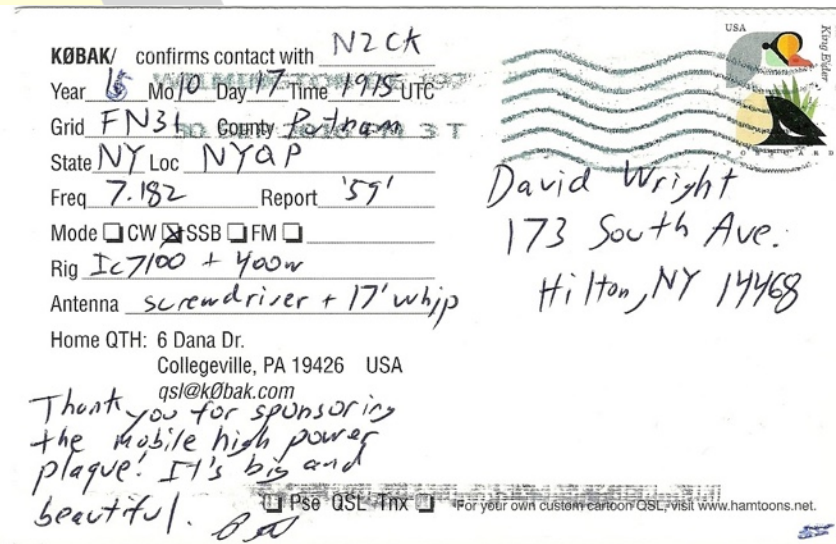 KØBAK/ confirms contact with N2CK
Year 16 Mo 10 Day 17 Time 1915 UTC
Grid FN31 County Putnam
State NY Loc NYQP
Freq 7.182 Report '59'
Mode CW SSB FM
Rig Ic7100 + 400w
Antenna screwdriver + 17' whip
Home QTH: 6 Dana Dr.
Collegeville, PA 19426 USA
qsl@kØbak.com
Thank you for sponsoring
the mobile high power
plaque! It's big and
beautiful.
Pse QSL Tnx
For your own custom cartoon QSL, visit www.hamtoons.net.
USA
King Eider
POSTCARD
David Wright
173 South Ave.
Hilton, NY 14468